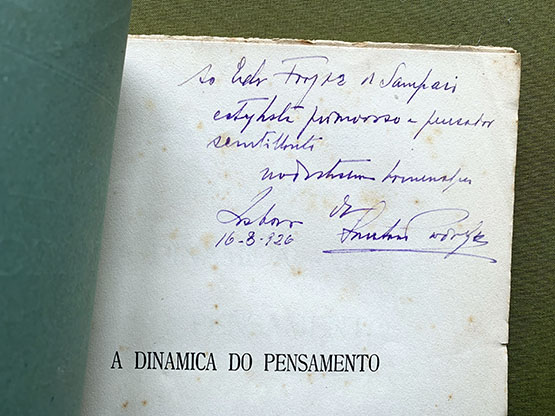 ao Exmo Forjaz de Sampaio
estylista primoroso e pensador
scintillante
modestissima homenagem
Lisboa de
16-3-926
A DINAMICA DO PENSAMENTO